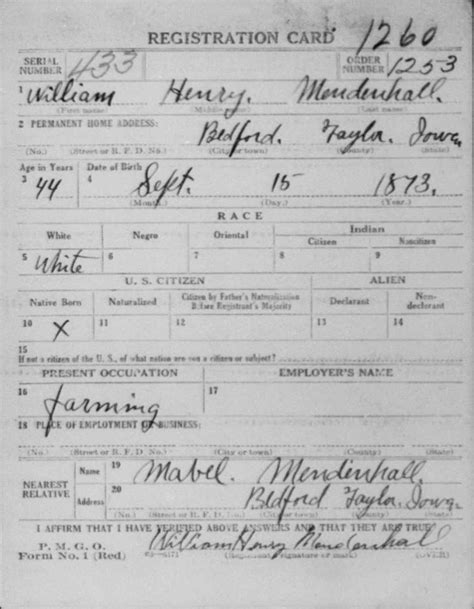 REGISTRATION CARD 1260
SERIAL NUMBER 433 ORDER NUMBER 1253
1 William Henry. Mendenhall.
(First name) (Middle name) (Last name)
2 PERMANENT HOME ADDRESS: Bedford. Taylor. Iowa
(No.) (Street or R. F. D. No.) (City or town) (County) (State)
Age in Years Date of Birth
3 44 4 Sept. 15 1873.
(Month.) (Day.) (Year.)
RACE
White Negro Oriental Indian
Citizen Noncitizen
5 White 6 7 8 9
U. S. CITIZEN ALIEN
Native Born Naturalized Citizen by Father's Naturalization Before Registrant's Majority Declarant Non-declarant
10 X 11 12 13 14
15
If not a citizen of the U. S., of what nation are you a citizen or subject?
PRESENT OCCUPATION EMPLOYER'S NAME
16 farming 17
18 PLACE OF EMPLOYMENT OR BUSINESS:
(No.) (Street or R. F. D. No.) (City or town) (County) (State)
NEAREST RELATIVE Name 19 Mabel. Mendenhall.
Address 20 Bedford Taylor, Iowa.
(No.) (Street or R. F. D. No.) (City or town) (County) (State)
I AFFIRM THAT I HAVE VERIFIED ABOVE ANSWERS AND THAT THEY ARE TRUE
P. M. G. O.
Form No. 1 (Red) William Henry Mendenhall
(Registrant's signature or mark) (OVER)